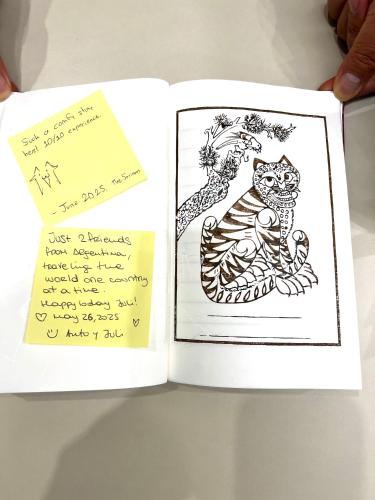 Such a comfy stay
here! 10/10 experience.
- June 2025.
Just 2 friends
from Argentina,
traveling the
world one country
at a time.
Happy bday Juli!
♡ May 26, 2025 ♡
☺ Anto y Juli